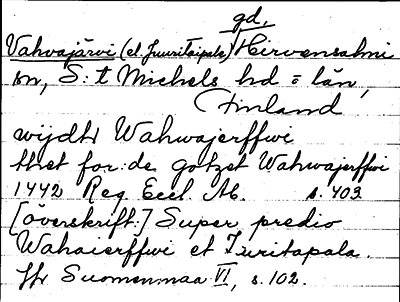 gd,
Vahvajärvi (el. Juuritaipale) Hirvensalmi
sn, S:t Michels hd o län,
Finland
wijdh Wahwajerffwi
thet for:de gotzet Wahwajerffwi
1442 Reg. Eccl. Ab. s. 403
[överskrift:] Super predio
Wahaierffwi et Juritapala.
Jfr Suomenmaa VI, s. 102.